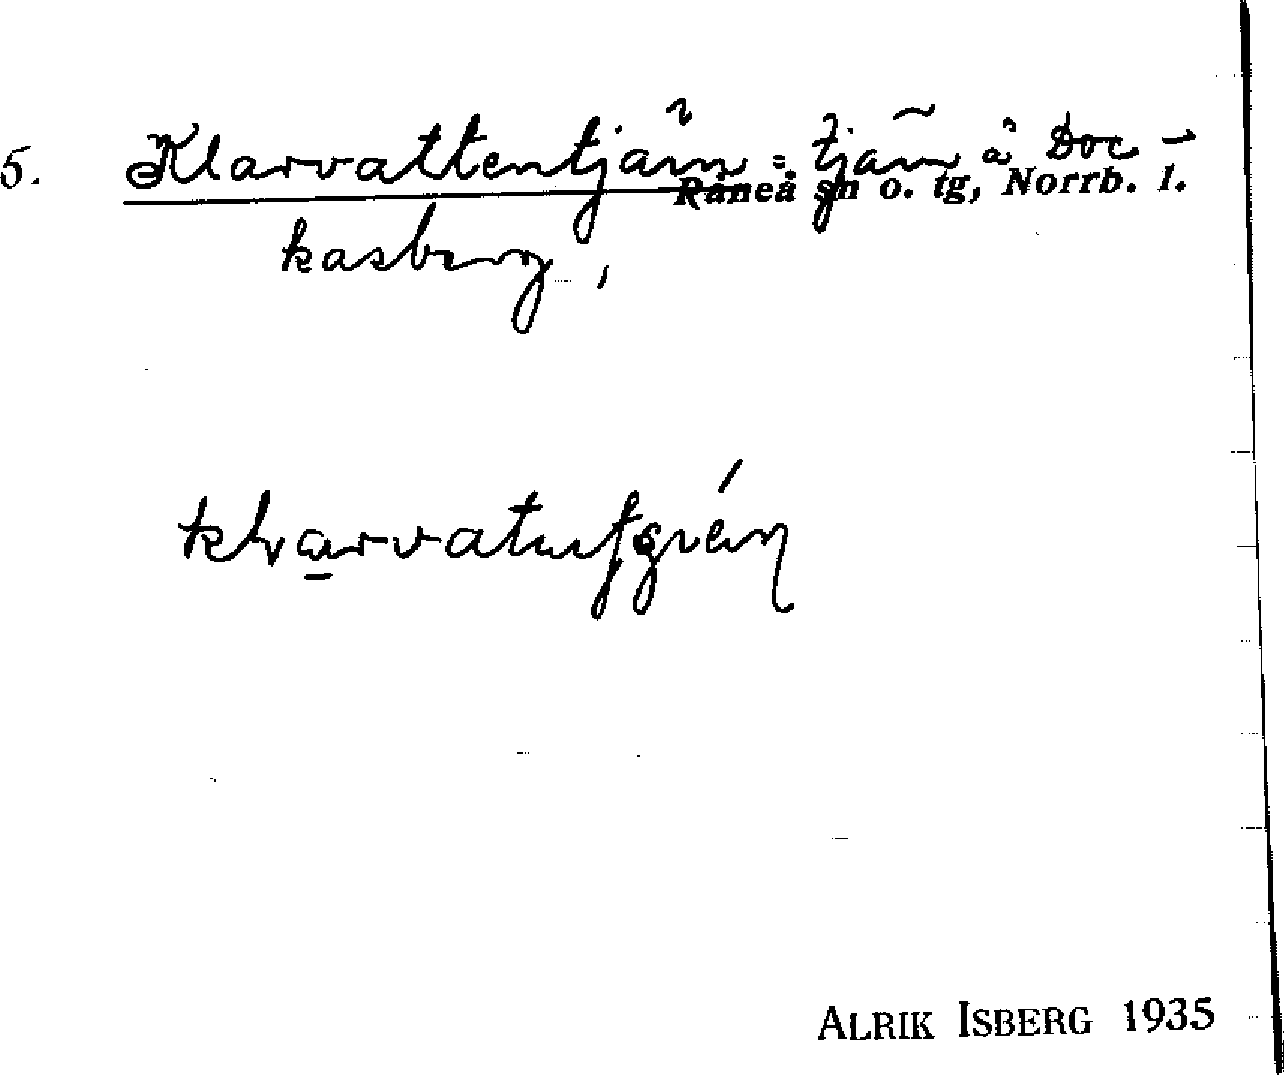 5. Klarvattentjärn : tjärn å Doc-
Råneå sn o. tg, Norrb. l.
kasberg,
ALRIK ISBERG 1935